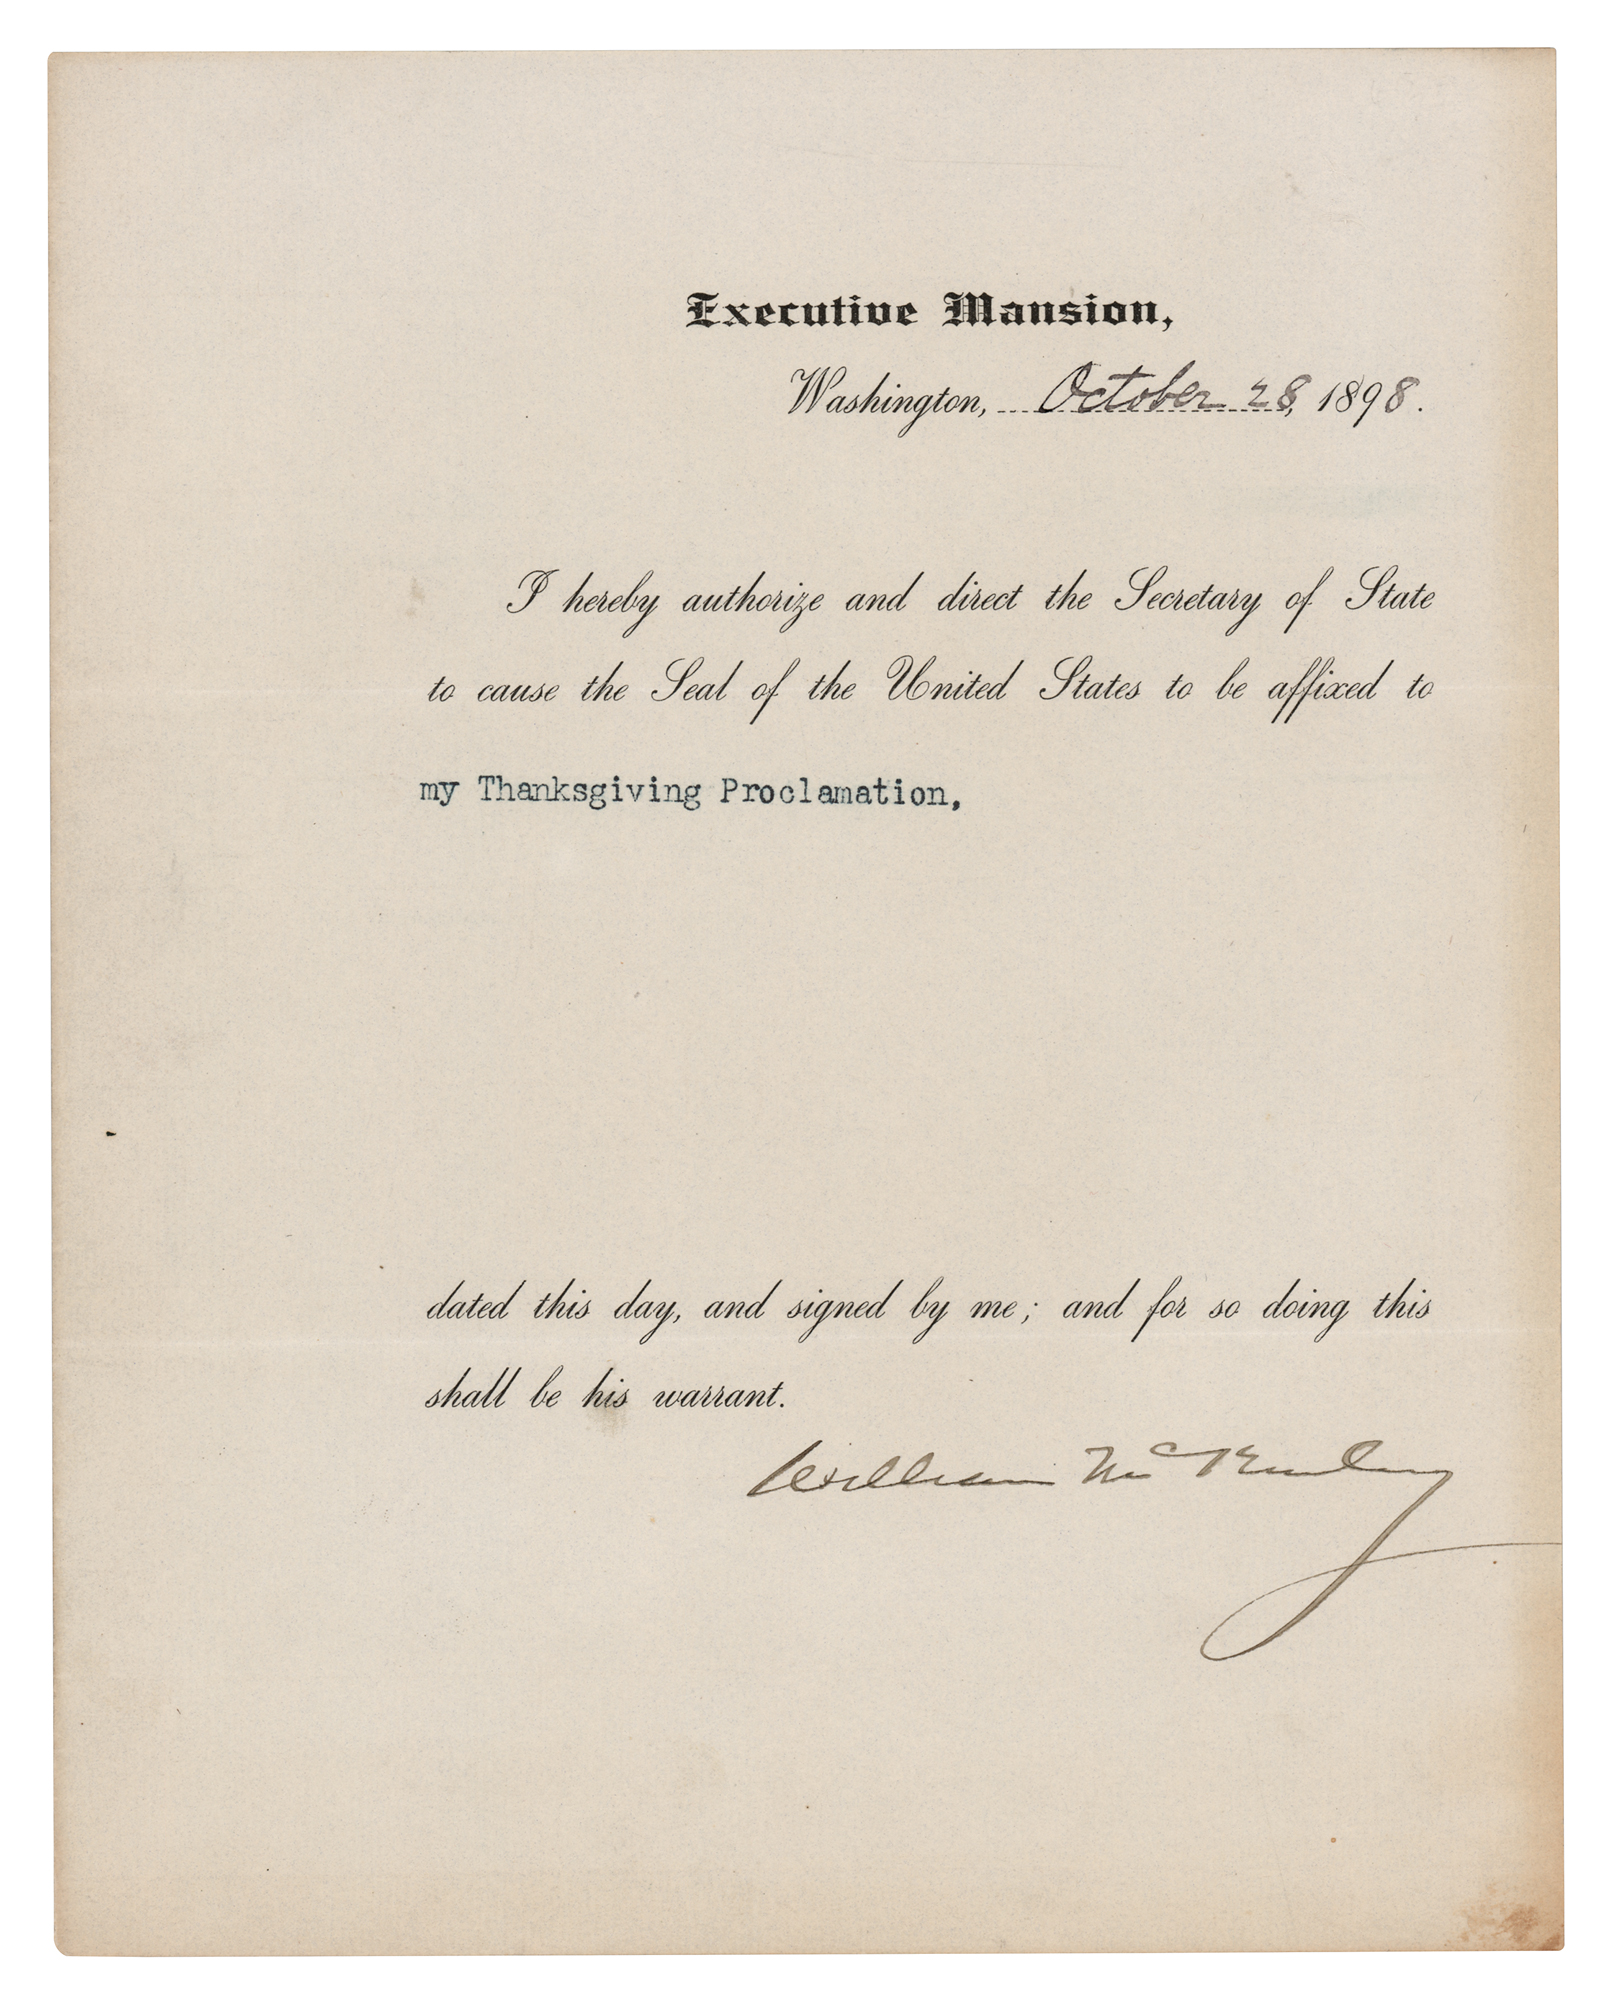 Executive Mansion,
Washington, October 28, 1898.
I hereby authorize and direct the Secretary of State
to cause the Seal of the United States to be affixed to
my Thanksgiving Proclamation,
dated this day, and signed by me; and for so doing this
shall be his warrant.
William McKinley